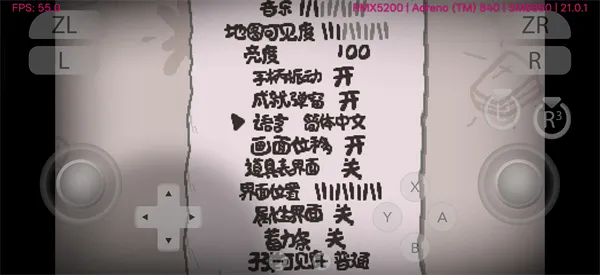 FPS: 55.0
RMX5200 | Adreno (TM) 840 | SM8850 | 21.0.1
ZL
ZR
L
R
R³
X
Y
A
B
音乐
地图可见度
亮度 100
手柄振动 开
成就弹窗 开
语言 简体中文
画面位移 开
道具表界面 关
界面位置
属性界面 关
蓄力条 关
可见度 普通